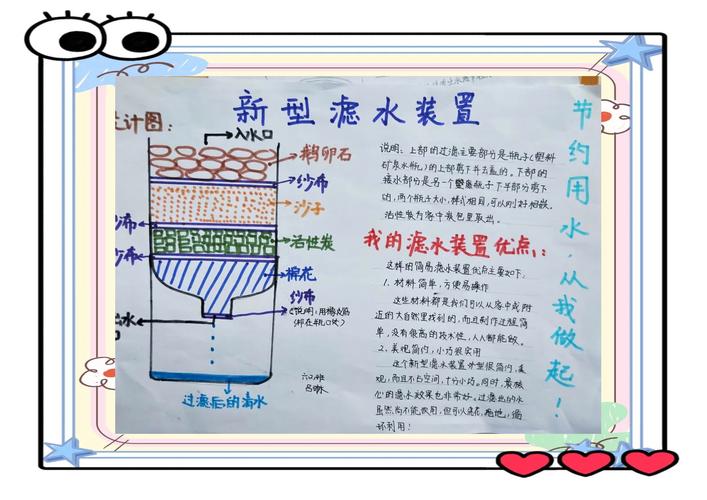 新型滤水装置
计图:
入水口
鹅卵石
纱布
沙子
纱布
活性炭
纱布
棉花
纱布
(说明:用橡皮筋
绑在瓶口处)
出水
过滤后的清水
六
说明:上部的过滤主要部分是瓶子(塑料
矿泉水瓶)的上部剪下半去瓶的。下部的
接水部分是另一个塑瓶子下半部分剪下
的,两个瓶子大小,样式相同,可以刚好相嵌。
活性炭为客中炭包里取出。
我的滤水装置优点:
这样的简易滤水装置优点主要如下:
1、材料简单,方便易操作
这些材料都是我们可以从客中或附
近的大自然里找到的,而且制作过程简
单,没有很高的技术性,人人都能做。
2、美观简约,小巧很实用
这个新型滤水装置外型很简约,美
观,而且不占空间,十分小巧。同时,最核
心的滤水效果也非常好。过滤出的水
虽然尚不能饮用,但可以浇花、拖地,循
环利用!
节约用水,从我做起!